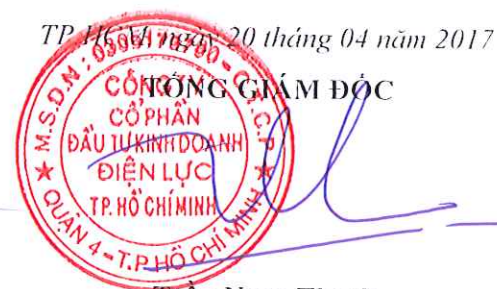 TP.HCM, ngày 20 tháng 04 năm 2017
TỔNG GIÁM ĐỐC
M.S.D.N: C.T.C.P
CÔNG TY
CỔ PHẦN
ĐẦU TƯ KINH DOANH
ĐIỆN LỰC
TP. HỒ CHÍ MINH
QUẬN 4 - T.P HỒ CHÍ MINH